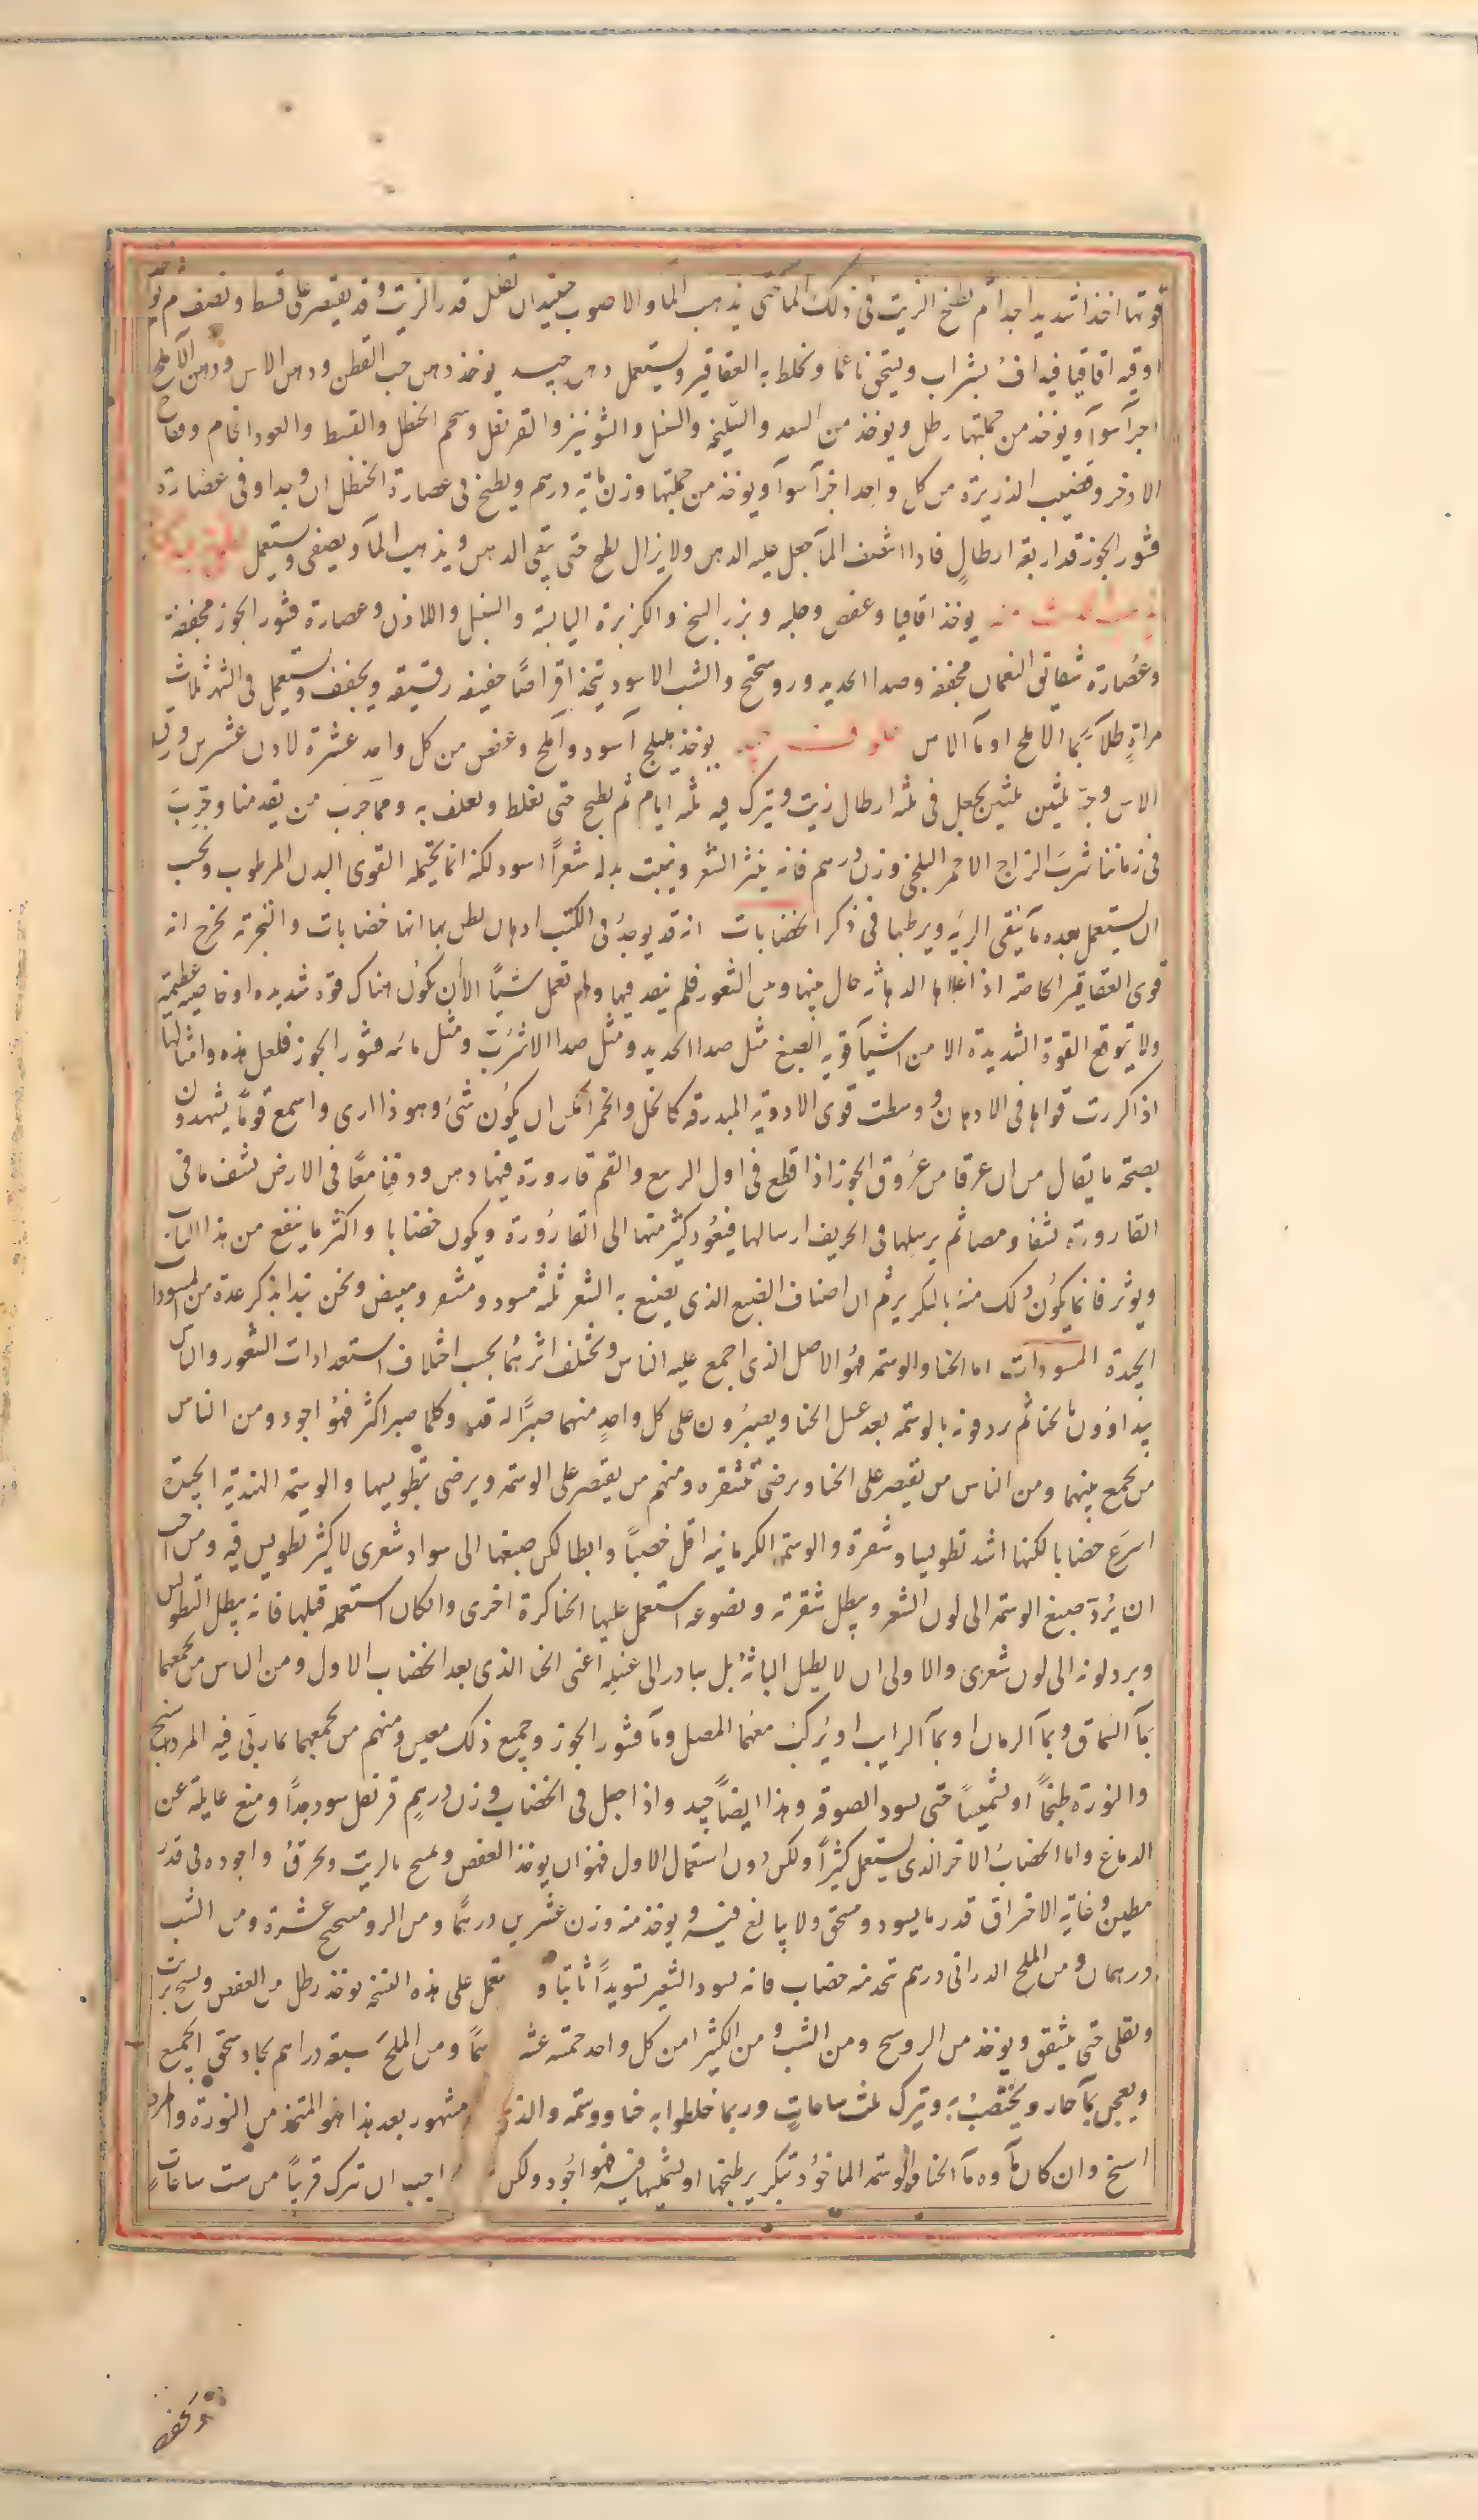 قوتها اخذا شديدا جدا ثم يطبخ الزيت فى ذلك الما حتى يذهب الما والاصوب حينئذ ان تقلل قدر الزيت وقد يقتصر على قسط ونصف ثم يوخذ
اوقيه اقاقيا فيداف بشراب ويسحق ناعما ويخلط به العقاقير ويستعمل دهن جيد يوخذ دهن حب القطن ودهن الاس ودهن الآملج
اجزآ سوآ ويوخذ من جملتها رطل ويوخذ من السعد والسليخه والسنبل والشونيز والقرنفل وشحم الحنظل والقسط والعود الخام وفقاح
الاذخر وقضيب الذريرة من كل واحد اجزآ سوآ ويوخذ من جملتها وزن مائة درهم ويطبخ فى عصارة الحنظل ان وجد او فى عصارة
قشور الجوز قدر اربعة ارطال فاذا انتصف المآ جعل عليه الدهن ولا يزال يطبخ حتى يبقى الدهن ويذهب المآ ويصفى ويستعمل
يوخذ اقاقيا وعفص وحلبه وبزر البنج والكزبرة اليابسة والسنبل واللاذن وعصارة قشور الجوز مجففة
وعصارة شقائق النعمان مجففه وصدا الحديد وروسختج والشب الاسود يتخذ اقراصا خفيفه رقيقه ويجفف ويستعمل فى الشهر ثلاث
مرات طلآ بمآ الاملج او مآ الاس جيد يوخذ هليلج اسود وآملج وعفص من كل واحد عشرة لاذن عشرين ورق
الاس وحبه ثلثين ثلثين يجعل فى ثلثه ارطال زيت ويترك فيه ثلثه ايام ثم يطبخ حتى يغلظ ويغلف به ومما جرب من يقدمنا وجرب
فى زماننا شرب الزاج الاحمر البلخى وزن درهم فانه ينثر الشعر وينبت بدله شعرا اسود لكنه انما يحتمله القوى البدن المرطوب ويجب
ان يستعمل بعده مآ ينقى الريه ويرطبها فى ذكر الخضابات انه قد يوجد فى الكتب ادهان يظن بها انها خضابات والتجربه تخرج انه
قوى العقاقير الخاصه اذا غلبها الدهانه حال بينها وبين الشعور فلم ينفد فيها ولم تعمل شيأ الا ان يكون هناك قوة شديده او خاصيه عظيمة
ولا يتوقع القوة الشديدة الا من اشيآ قوية الصبغ مثل صدا الحديد ومثل صدا الاسرب ومثل مائه قشور الجوز فلعل هذه وامثالها
اذا كررت قواها فى الادهان ووسطت قوى الادوية المبدرقه كالخل والخمر امكن ان يكون شئ وهو ذا ارى واسمع قوما يشهدون
بصحة ما يقال من ان عرقا من عروق الجوز اذا قطع فى اول الربيع والقم قارورة فيها دهن ودفنا معا فى الارض نشف ما فى
القارورة نشفا ومصا ثم يرسلها فى الخريف ارسالها فيعود كثير منها الى القارورة ويكون خضابا واكثر ما ينفع من هذا الباب
ويوثر فانما يكون ذلك منه بالتكرير ثم ان اصناف الصبغ الذى يصبغ به الشعر ثلثه مسود ومشقر ومبيض ونحن نبدا بذكر عدة من المسودات
الجيدة المسودات اما الحنا والوسمه فهو الاصل الذى اجمع عليه الناس ويختلف اثرهما بحسب اختلاف استعدادات الشعور والناس
يبداوون بالحنا ثم يردفونه بالوسمه بعد غسل الحنا ويصبرون على كل واحد منهما صبرا له قدر وكلما صبر اكثر فهو اجود ومن الناس
من يجمع بينهما ومن الناس من يقتصر على الحنا ويرضى بتشقره ومنهم من يقتصر على الوسمه ويرضى بتطويسها والوسمة الهندية الجيدة
اسرع خضابا لكنها اشد تطويسا وشقرة والوسمه الكرمانيه اقل خضبا وابطا لكن صبغها الى سواد شعرى لا كثير تطويس فيه ومن احب
ان يرد صبغ الوسمه الى لون الشعر ويبطل شقرته ونصوعه استعمل عليها الحنا كرة اخرى وان كان استعمله قبلها فانه يبطل التطويس
ويرد لونه الى لون شعرى والاولى ان لا يطيل الباثه بل يبادر الى غسله اعنى الحنا الذى بعد الخضاب الاول ومن الناس من يجمعهما
بمآ السماق وبمآ الرمان او بمآ الرايب او يركب معهما المصل ومآ قشور الجوز وجميع ذلك معين ومنهم من يجمعهما بما ربى فيه المرداسنج
والنورة طبخا او تشميسا حتى يسود الصوفه وهذا ايضا جيد واذا جعل فى الخضاب وزن درهم قرنفل سود جدا ومنع عايلته عن
الدماغ واما الخضاب الاخر الذى يستعمل كثيرا ولكن دون استعمال الاول فهو ان يوخذ العفص ويمسح بالزيت ويحرق واجوده فى قدر
مطين وغاية الاحتراق قدر ما يسود ويسحق ولا يبالغ فيه ويوخذ منه وزن عشرين درهما ومن الروسختج عشرة ومن الشب
درهمان ومن الملح الدرانى درهم يتخذ منه خضاب فانه يسود الشعر تسويدا ثابتا و تعمل على هذه النسخه يوخذ رطل من العفص ويمسح بزيت
ويقلى حتى يتشقق ويوخذ من الروسختج ومن الشب ومن الكثيرا من كل واحد خمسه عشر هما ومن الملح سبعه دراهم يجاد سحق الجميع
ويعجن بمآ حار ويختضب به ويترك ثلث ساعات وربما خلطوا به حنا ووسمه والذى مشهور بعد هذا هو المتخذ من النورة والمرد
اسنج وان كان ماوه مآ الحنا والوسمه الماخوذ بتكرير طبخها او تشميسها فيه فهو اجود ولكن احب ان يترك قريبا من ست ساعات